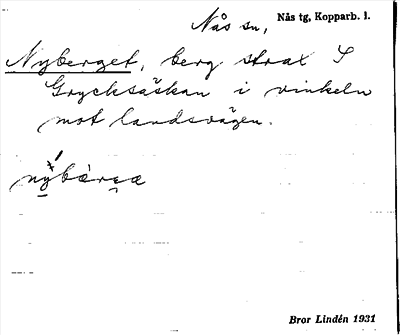 Nås sn, Nås tg, Kopparb. l.
Nyberget, berg strax S
Grycksåskan i vinkeln
mot landsvägen.
Bror Lindén 1931